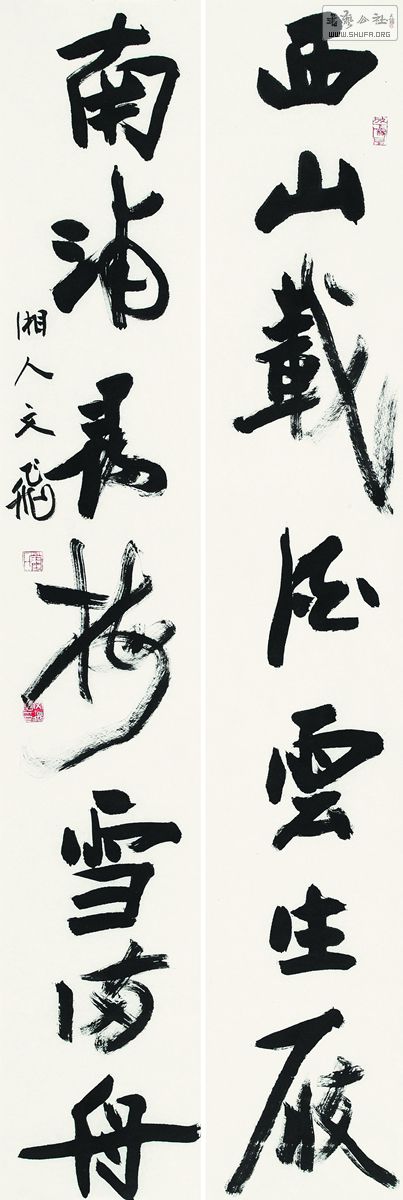 西山載酒雲生屐
南浦尋梅雪滿舟
湘人文飛
書藝公社
WWW.SHUFA.ORG